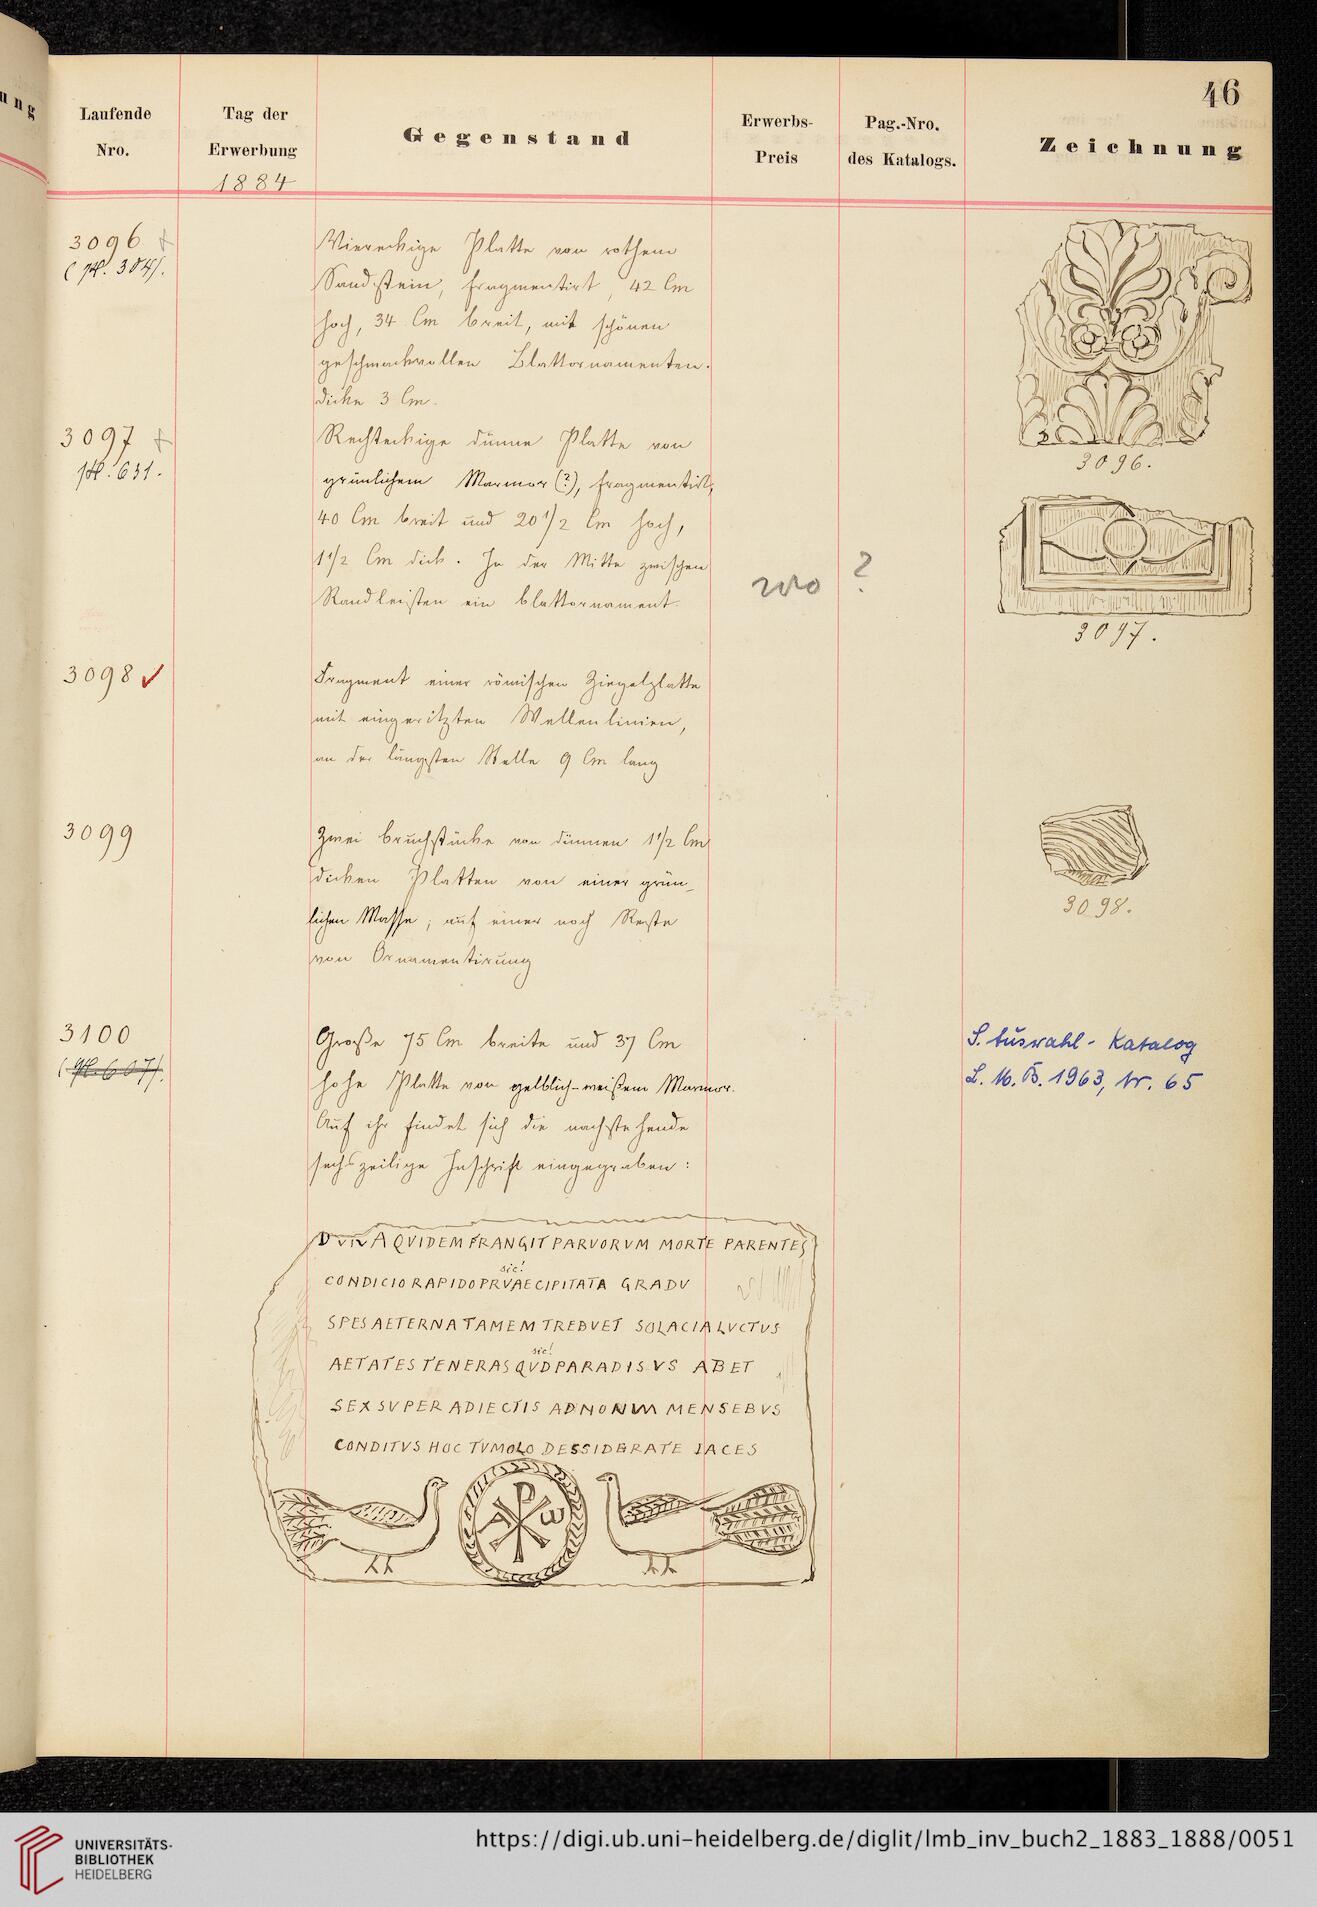 ung
46
Laufende
Nro.
Tag der
Erwerbung
1884
Gegenstand
Erwerbs-
Preis
Pag.-Nro.
des Katalogs.
Zeichnung
3096
304).
Viereckige Platte von rothem
Sandstein, fragmentirt, 42 Cm
hoch, 34 Cm breit, mit schönen
geschmackvollen Blattornamenten.
Dicke 3 Cm.
3096.
3097
631.
Rechteckige dünne Platte von
grünlichem Marmor (?), fragmentirt,
40 Cm breit und 20 1/2 Cm hoch,
1 1/2 Cm dick. In der Mitte zwischen
Randleisten ein Blattornament.
wo ?
3097.
3098 ✓
Fragment einer römischen Ziegelplatte
mit eingeritzten Wellenlinien,
an der längsten Stelle 9 Cm lang
3098.
3099
Zwei Bruchstücke von dünnen 1 1/2 Cm
dicken Platten von einer grün-
lichen Masse; auf einer noch Reste
von Ornamentirung
3100
607).
Große 75 Cm breite und 37 Cm
hohe Platte von gelblich-weißem Marmor.
Auf ihr findet sich die nachstehende
sechszeilige Inschrift eingegraben:
S. Auswahl-Katalog
L. M. B. 1963, Nr. 65
QVIDEM FRANGIT PARVORVM MORTE PARENTES
sic!
CONDICIO RAPIDO PRVAECIPITATA GRADV
SPES AETERNA TAMEM TREBVET SOLACIA LVCTVS
sic!
AETATES TENERAS QVD PARADISVS ABET
SEX SVPER ADIECTIS AD NONVM MENSEBVS
CONDITVS HOC TVMOLO DESSIDERATE IACES
A ω
UNIVERSITÄTS-
BIBLIOTHEK
HEIDELBERG
https://digi.ub.uni-heidelberg.de/diglit/lmb_inv_buch2_1883_1888/0051